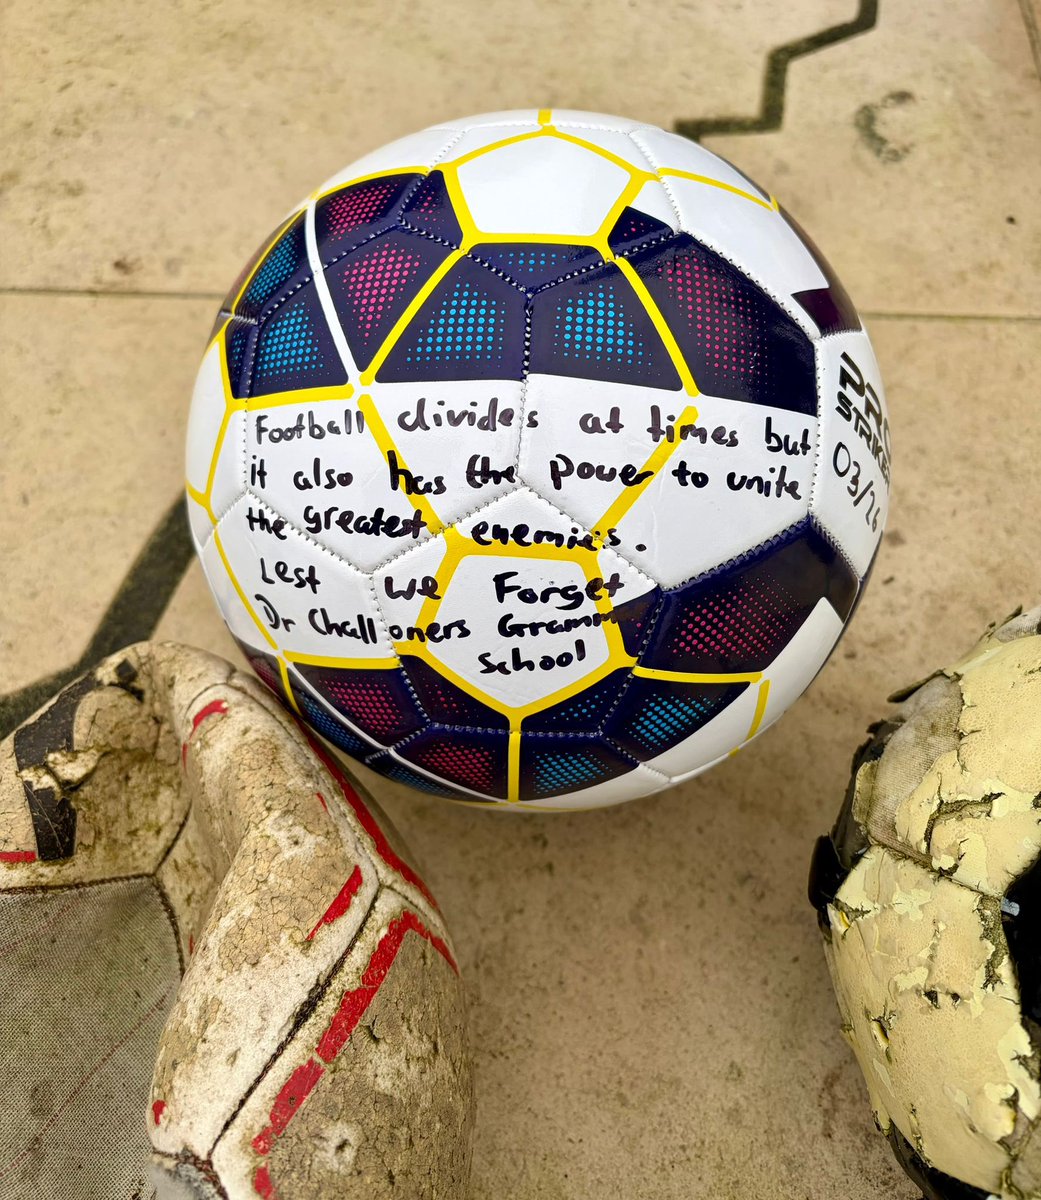 Football divides at times but
it also has the power to unite
the greatest enemies.
Lest we Forget
Dr Challoners Grammar
School
PRO
STRIKER
03/26